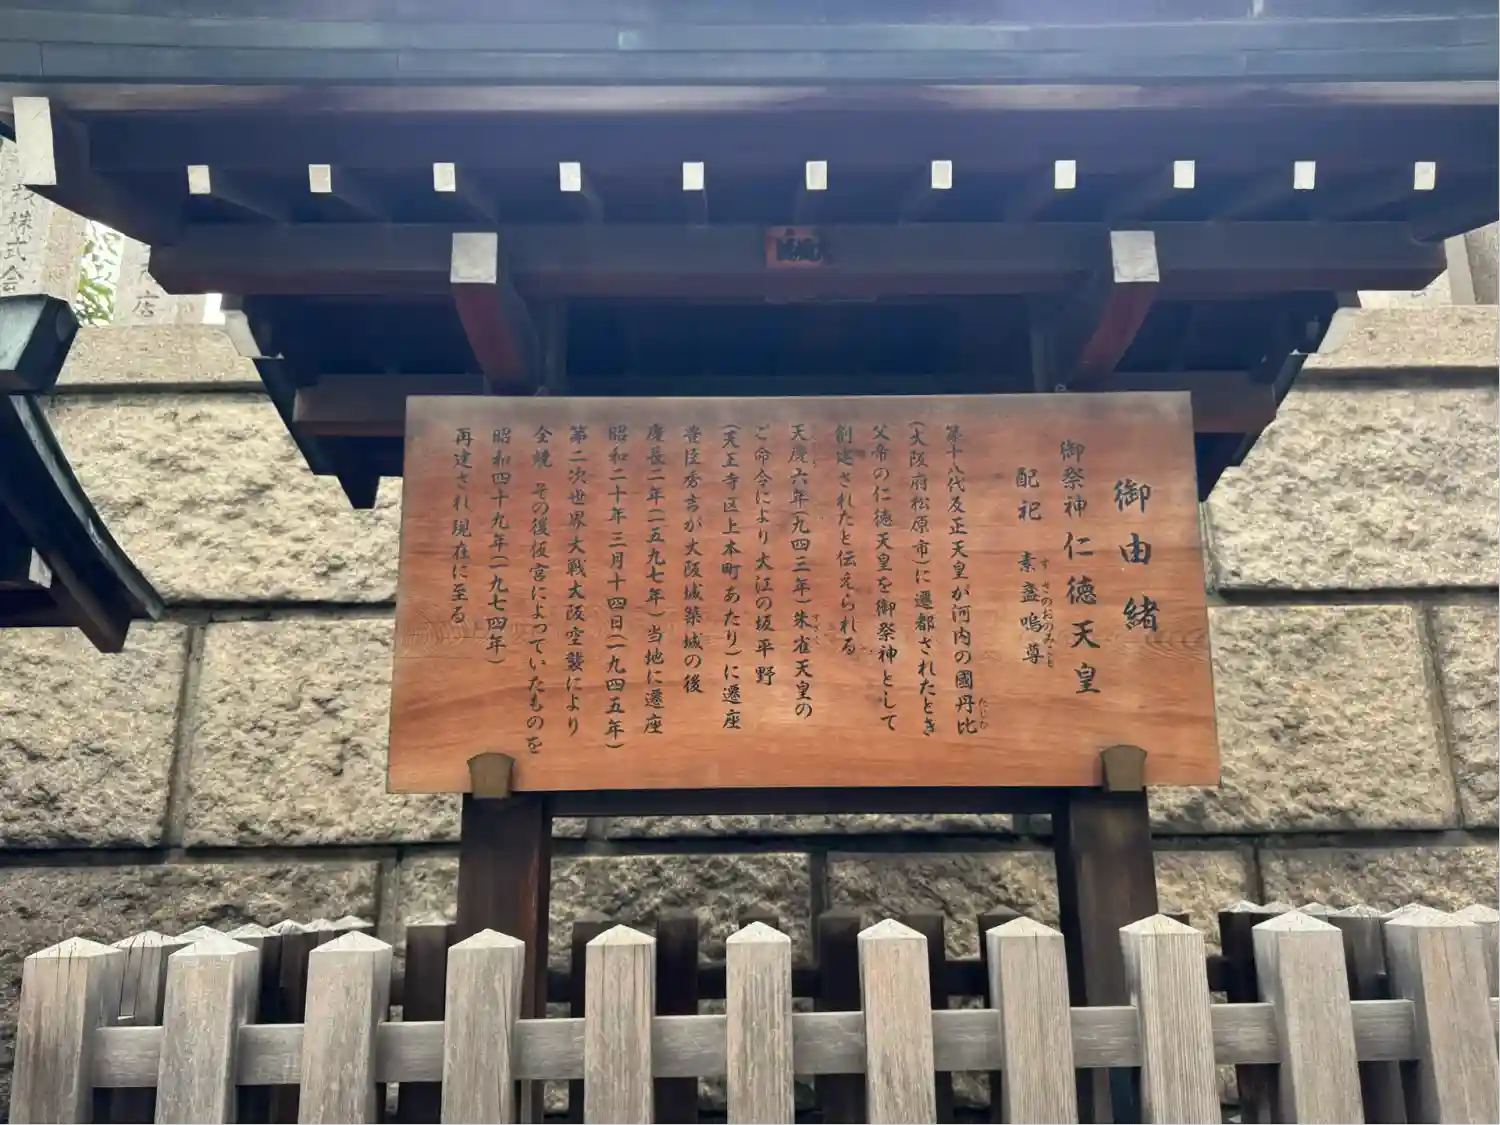 御由緒
御祭神 仁徳天皇
配祀 素盞嗚尊
すさのおのみこと
第十八代反正天皇が河内の國丹比
たじひ
(大阪府松原市)に遷都されたとき
父帝の仁徳天皇を御祭神として
創建されたと伝えられる
天慶六年(九四三年)朱雀天皇の
ご命令により大江の坂平野
(天王寺区上本町あたり)に遷座
豊臣秀吉が大阪城築城の後
慶長二年(一五九七年)当地に遷座
昭和二十年三月十四日(一九四五年)
第二次世界大戦大阪空襲により
全焼 その後仮宮によっていたものを
昭和四十九年(一九七四年)
再建され現在に至る
株式会
店